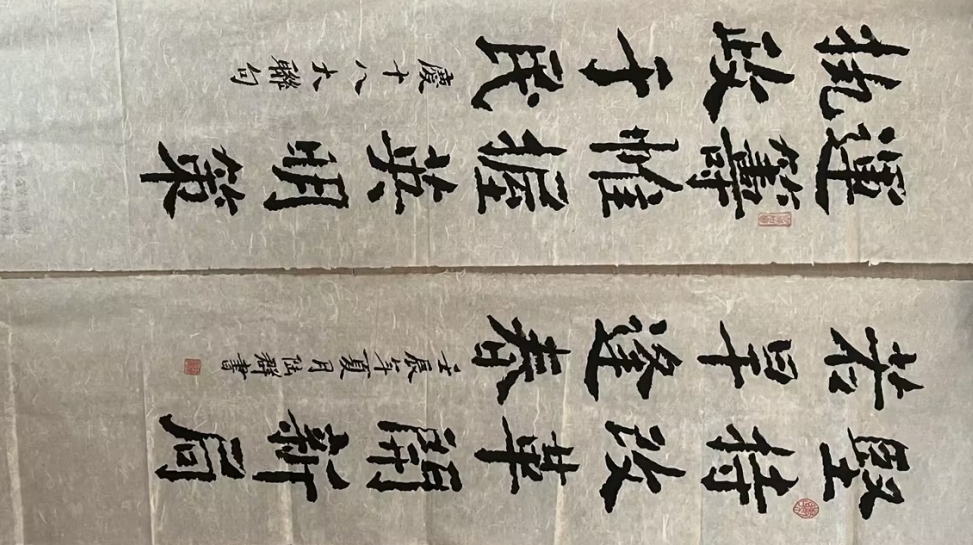 運籌帷握英明策
执政于民
慶十八大聯句
堅持改革開新局
若旱逢春
壬辰年夏月 群書